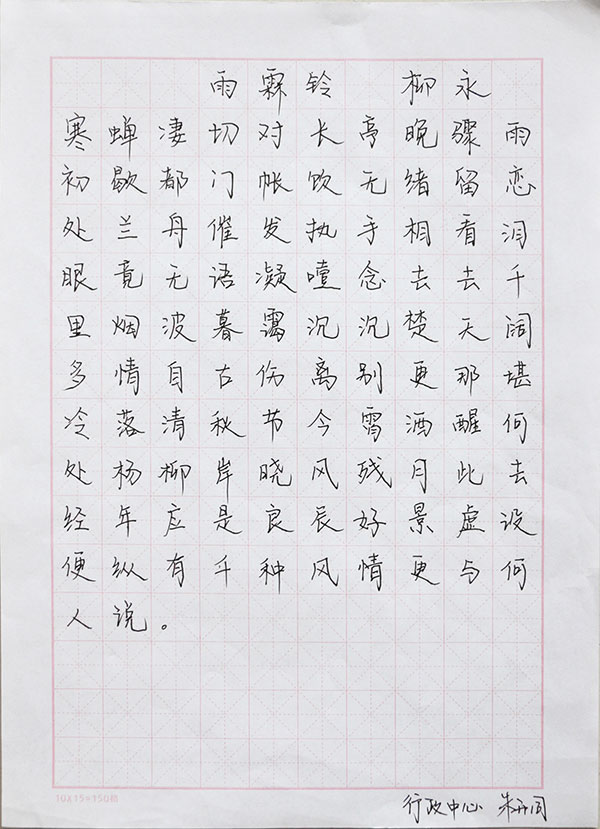 雨霖铃 柳永
寒蝉凄切对长亭晚骤雨
初歇都门帐饮无绪留恋
处兰舟催发执手相看泪
眼竟无语凝噎念去去千
里烟波暮霭沉沉楚天阔
多情自古伤离别更那堪
冷落清秋节今霄酒醒何
处杨柳岸晓风残月此去
经年应是良辰好景虚设
便纵有千种风情更与何
人说。
10X15=150格
行政中心 朱